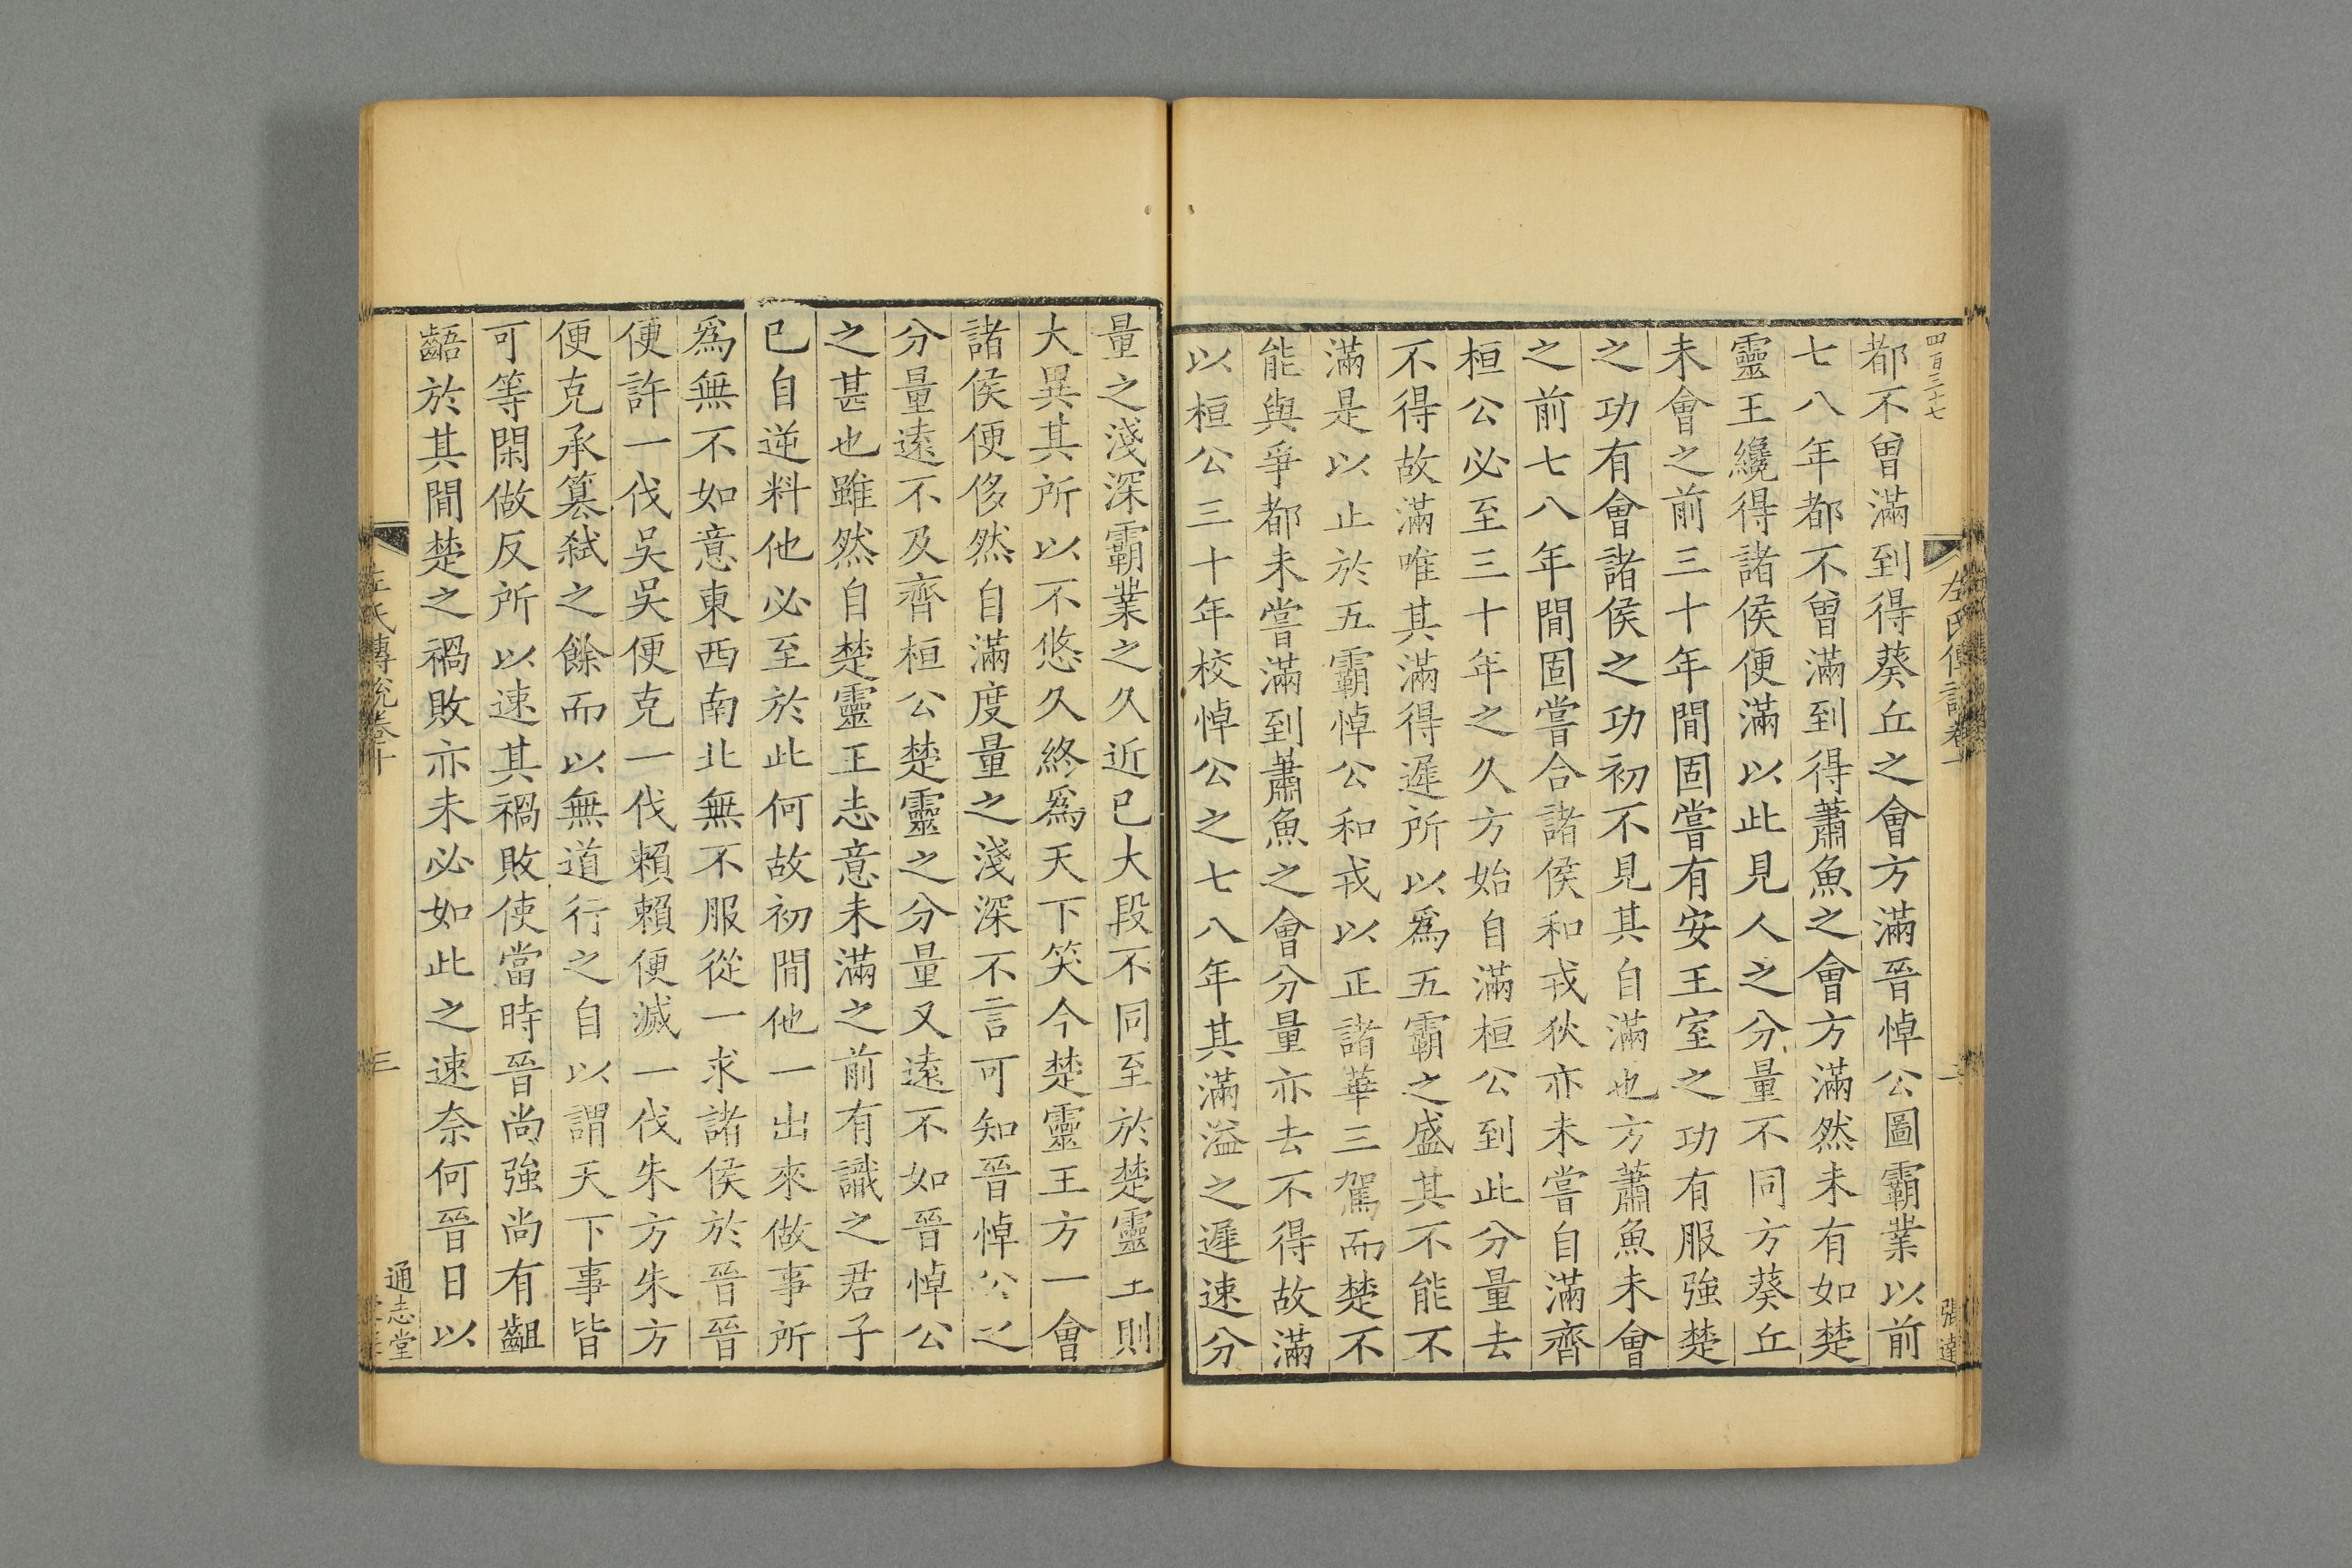 四百三十七
都不曾滿到得葵丘之會方滿晉悼公圖霸業以前
七八年都不曾滿到得蕭魚之會方滿然未有如楚
靈王纔得諸侯便滿以此見人之分量不同方葵丘
未會之前三十年間固嘗有安王室之功有服強楚
之功有會諸侯之功初不見其自滿也方蕭魚未會
之前七八年間固嘗合諸侯和戎狄亦未嘗自滿齊
桓公必至三十年之久方始自滿桓公到此分量去
不得故滿唯其滿得遲所以爲五霸之盛其不能不
滿是以止於五霸悼公和戎以正諸華三駕而楚不
能與爭都未嘗滿到蕭魚之會分量亦去不得故滿
以桓公三十年校悼公之七八年其滿溢之遲速分
量之淺深霸業之久近已大段不同至於楚靈王則
大異其所以不悠久終爲天下笑今楚靈王方一會
諸侯便侈然自滿度量之淺深不言可知晉悼公之
分量遠不及齊桓公楚靈之分量又遠不如晉悼公
之甚也雖然自楚靈王志意未滿之前有識之君子
已自逆料他必至於此何故初間他一出來做事所
爲無不如意東西南北無不服從一求諸侯於晉晉
便許一伐吳吳便克一伐賴賴便滅一伐朱方朱方
便克承篡弒之餘而以無道行之自以謂天下事皆
可等閑做反所以速其禍敗使當時晉尚強尚有齟
齬於其間楚之禍敗亦未必如此之速奈何晉日以
左氏傳說卷十
三
通志堂